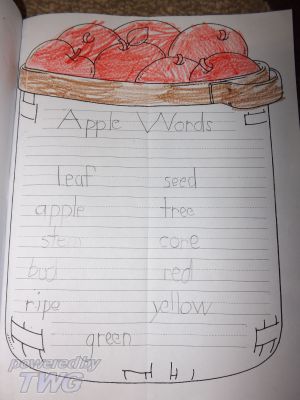 Apple Words
leaf seed
apple tree
stem core
bud red
ripe yellow
green
powered by
TWG